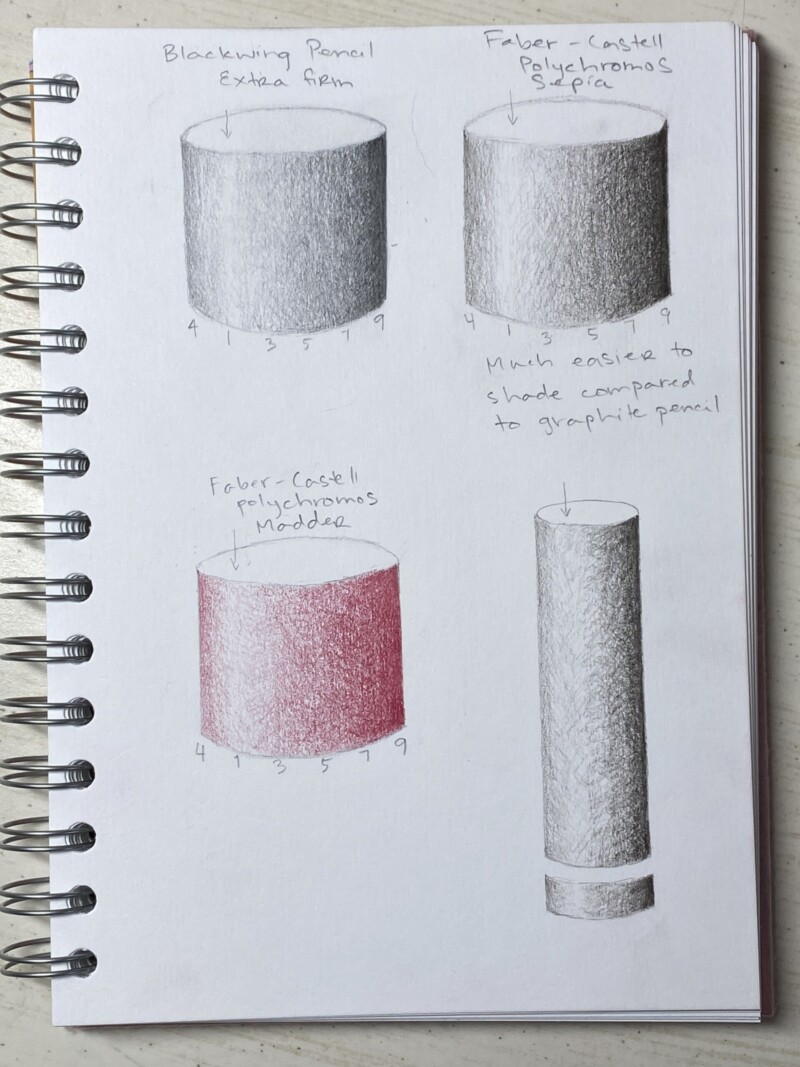 Blackwing Pencil
Extra firm
4 1 3 5 7 9
Faber-Castell
Polychromos
Sepia
4 1 3 5 7 9
Much easier to
shade compared
to graphite pencil
Faber-Castell
polychromos
Madder
4 1 3 5 7 9